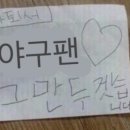 야구팬♡
그만두겠습